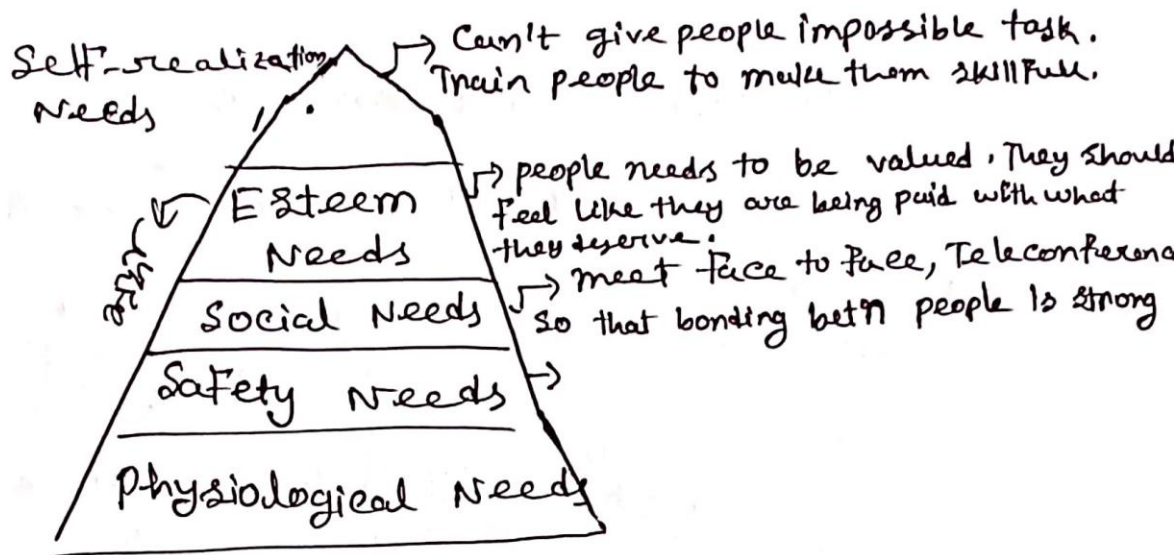 Self-realization
Needs
Can't give people impossible task.
Train people to make them skillfull.
Esteem
Needs
people needs to be valued. They should
feel like they are being paid with what
they deserve.
Social Needs
meet face to face, Teleconferenc
so that bonding betn people is strong
Safety Needs
Physiological Needs